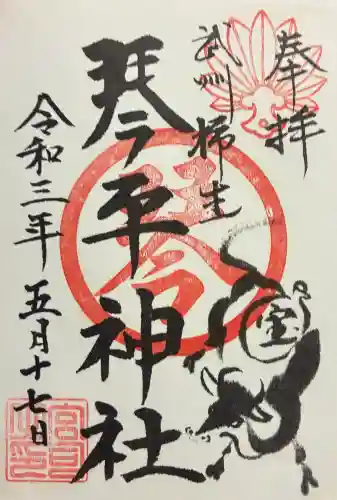 奉拝
武州柿生
琴平神社
令和三年五月十七日
宝